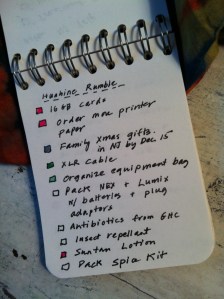 Huahine Rumble
16 GB cards
Order more printer
paper
Family Xmas gifts.
in NJ by Dec 15
XLR Cable
Organize equipment bag
Pack NEX + Lumix
w/ batteries + plug
adaptors
Antibiotics from GHC
Insect repellant
Suntan Lotion
Pack Spia Kit